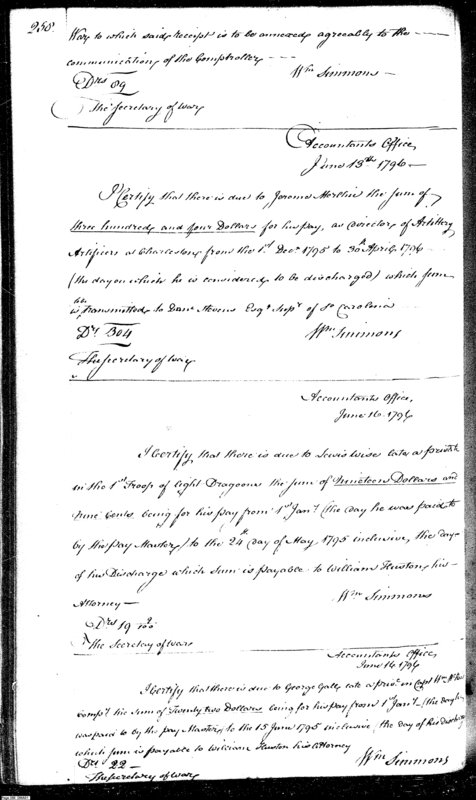 258.
War to which said receipt is to be annexed agreeably to the
communication of the Comptroller
Wm Simmons
Drs 89
The Secretary of War
Accountants Office,
June 13th 1796
I Certify that there is due to Jerome the sum of
three hundred and four Dollars for his pay, as director of Artillery
Artificers at Charleston, from the 1st Decr 1795 to 30th April 1796
(the day on which he is considered to be discharged) which sum
is transmitted to Danl Stevens Esqr Supr of So Carolina
Wm Simmons
Drs 304
The Secretary of War
Accountants Office,
June 16. 1796
I Certify, that there is due to Lewis Wise late a private
in the 1st Troop of Light Dragoons the sum of Nineteen Dollars and
nine Cents being for his pay from 1st Jany (the day he was paid to
by the Pay Master) to the 24th day of May, 1795 inclusive, the day
of his Discharge which sum is payable to William Huston, his
Attorney
Wm Simmons
Drs 19 9/100
The Secretary of War
Accountants Office
June 16. 1796
I Certify that there is due to George Gall late a private in Capt Wm
Compy the sum of Twenty two Dollars being for his pay from 1st Jany (the day he
was paid to by the pay Master) to the 15 June 1795 inclusive (the day of his discharge)
which sum is payable to William Huston his Attorney
Wm Simmons
Drs 22
The Secretary of War